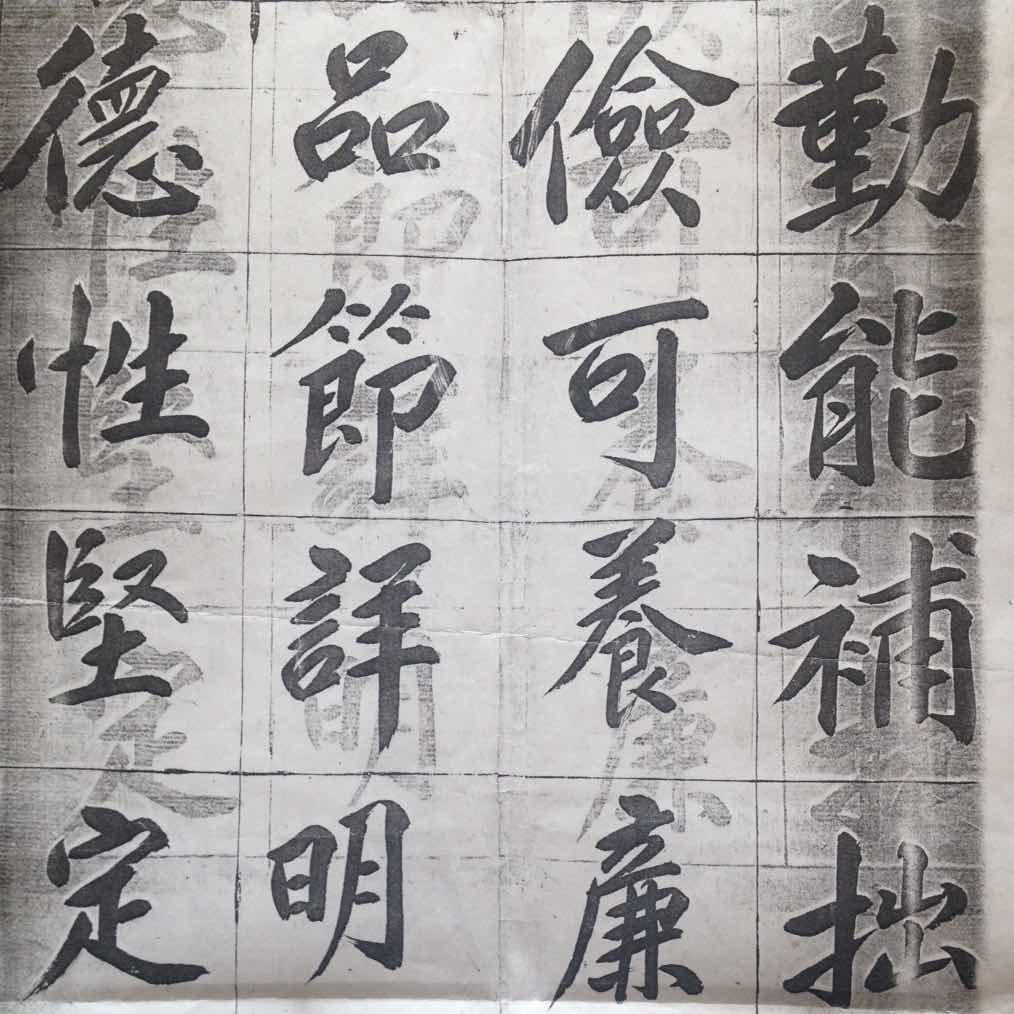 勤能補拙
儉可養廉
品節詳明
德性堅定